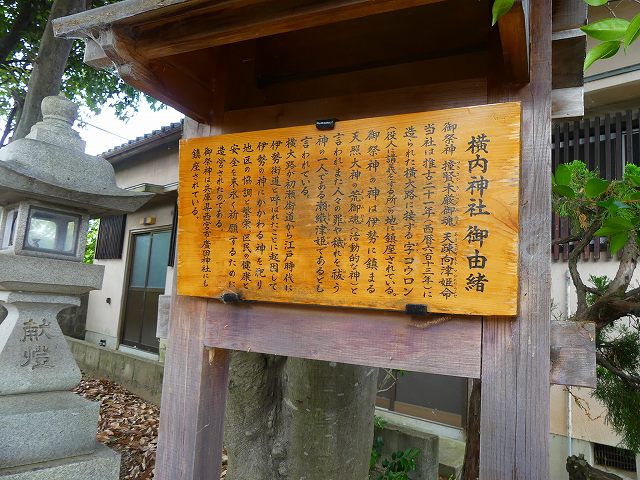 横内神社 御由緒
御祭神 撞賢木厳御魂 天疎向津姫命
当社は推古二十一年(西暦六百十三年)に
造られた横大路に接する字コウロン
(役人と講義とする所)の地に鎮座されている。
御祭神の神は伊勢に鎮まる
天照大神の荒御魂(活動的な神)と
言われまた人々の罪や穢れを祓う
神の一人である瀬織津姫であるとも
言われている。
横大路が初瀬街道から江戸時代に
伊勢街道と呼ばれたことに起因して
伊勢の神にかかわる神を祀り
地区の協調と繁栄・区民の健康と
安全を末永く祈願するために
造営されたのである。
御祭神は兵庫県西宮市廣田神社にも
鎮座されている。
献燈